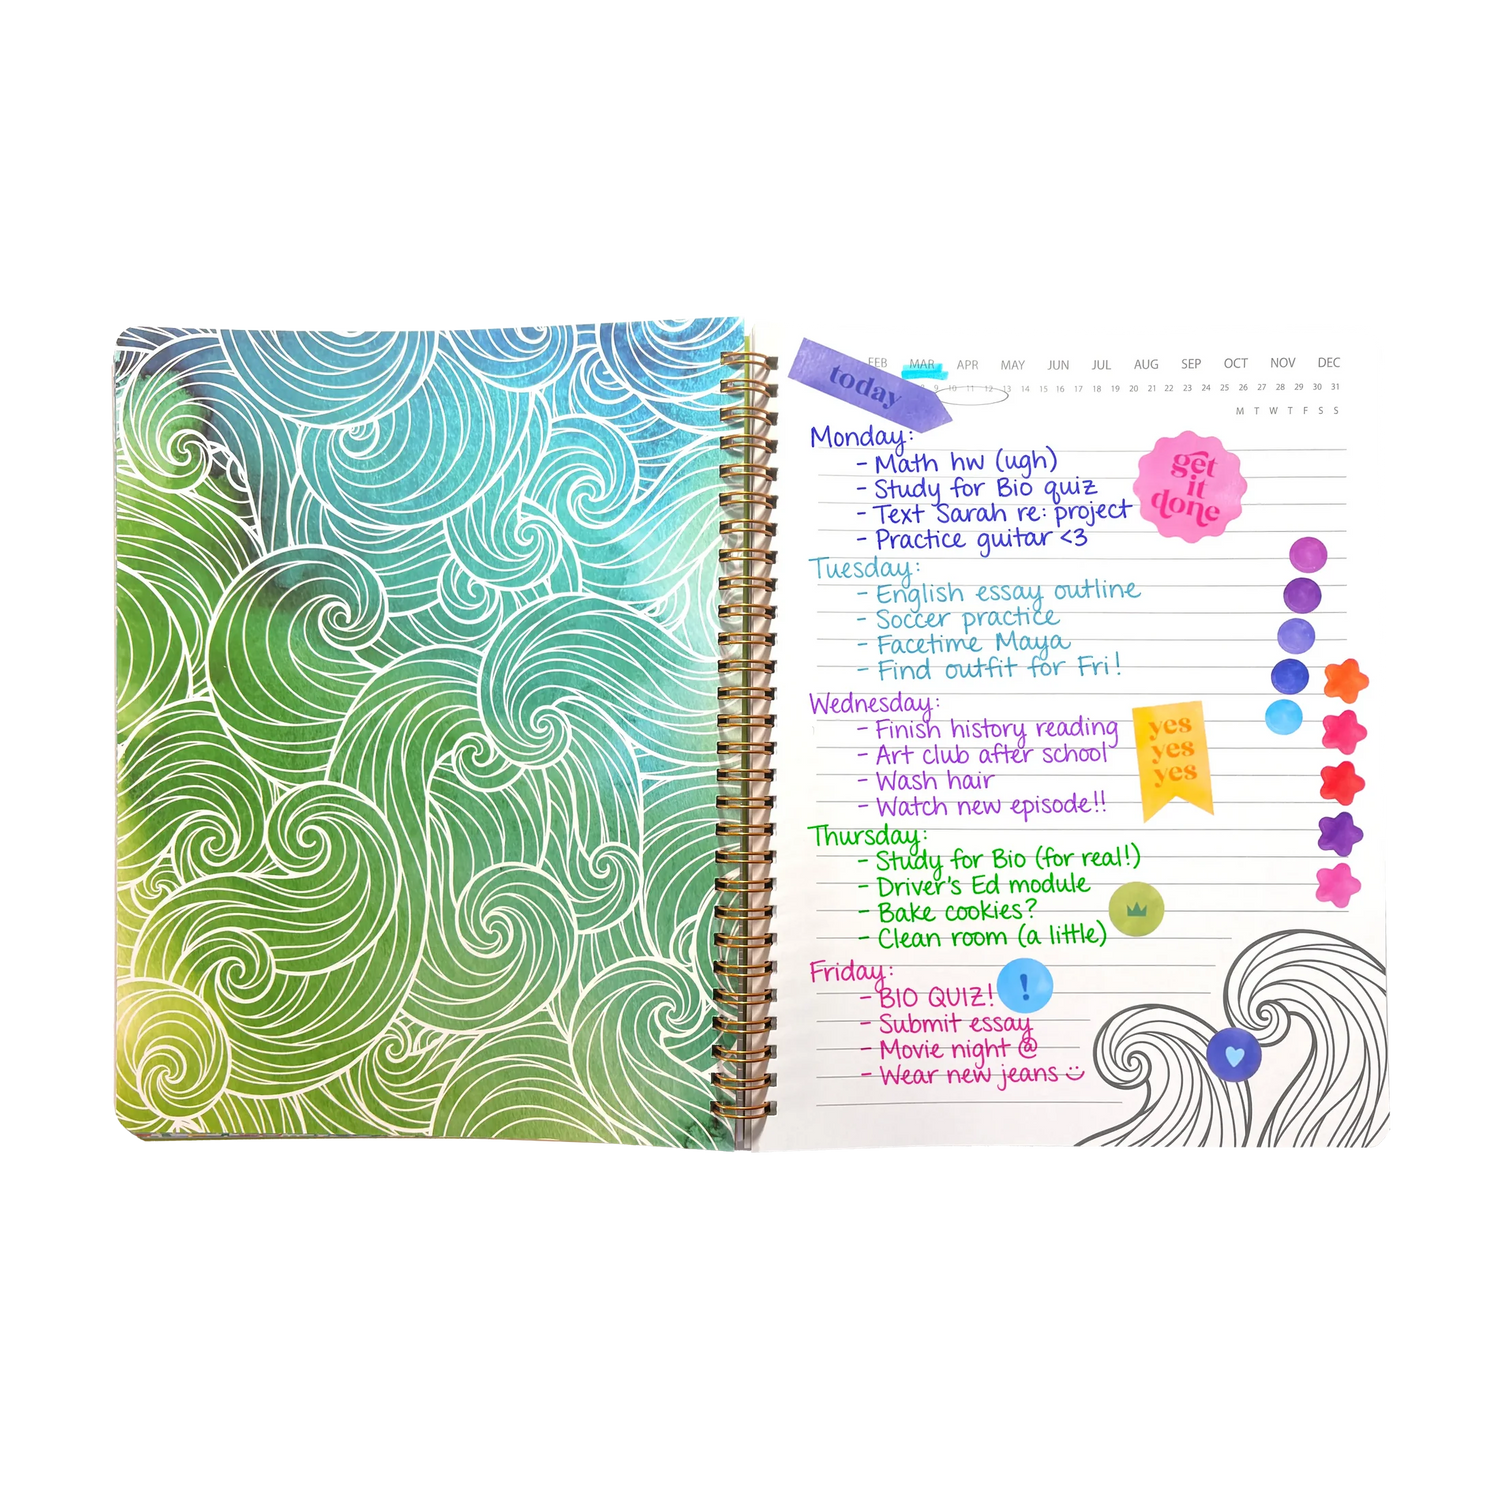 today
FEB MAR APR MAY JUN JUL AUG SEP OCT NOV DEC
9 10 11 12 13 14 15 16 17 18 19 20 21 22 23 24 25 26 27 28 29 30 31
M T W T F S S
Monday:
- Math hw (ugh)
- Study for Bio quiz
- Text Sarah re: project
- Practice guitar <3
get
it
done
Tuesday:
- English essay outline
- Soccer practice
- Facetime Maya
- Find outfit for Fri!
Wednesday:
- Finish history reading
- Art club after school
- Wash hair
- Watch new episode!!
yes
yes
yes
Thursday:
- Study for Bio (for real!)
- Driver's Ed module
- Bake cookies?
- Clean room (a little)
Friday:
- BIO QUIZ!
!
- Submit essay
- Movie night @
- Wear new jeans